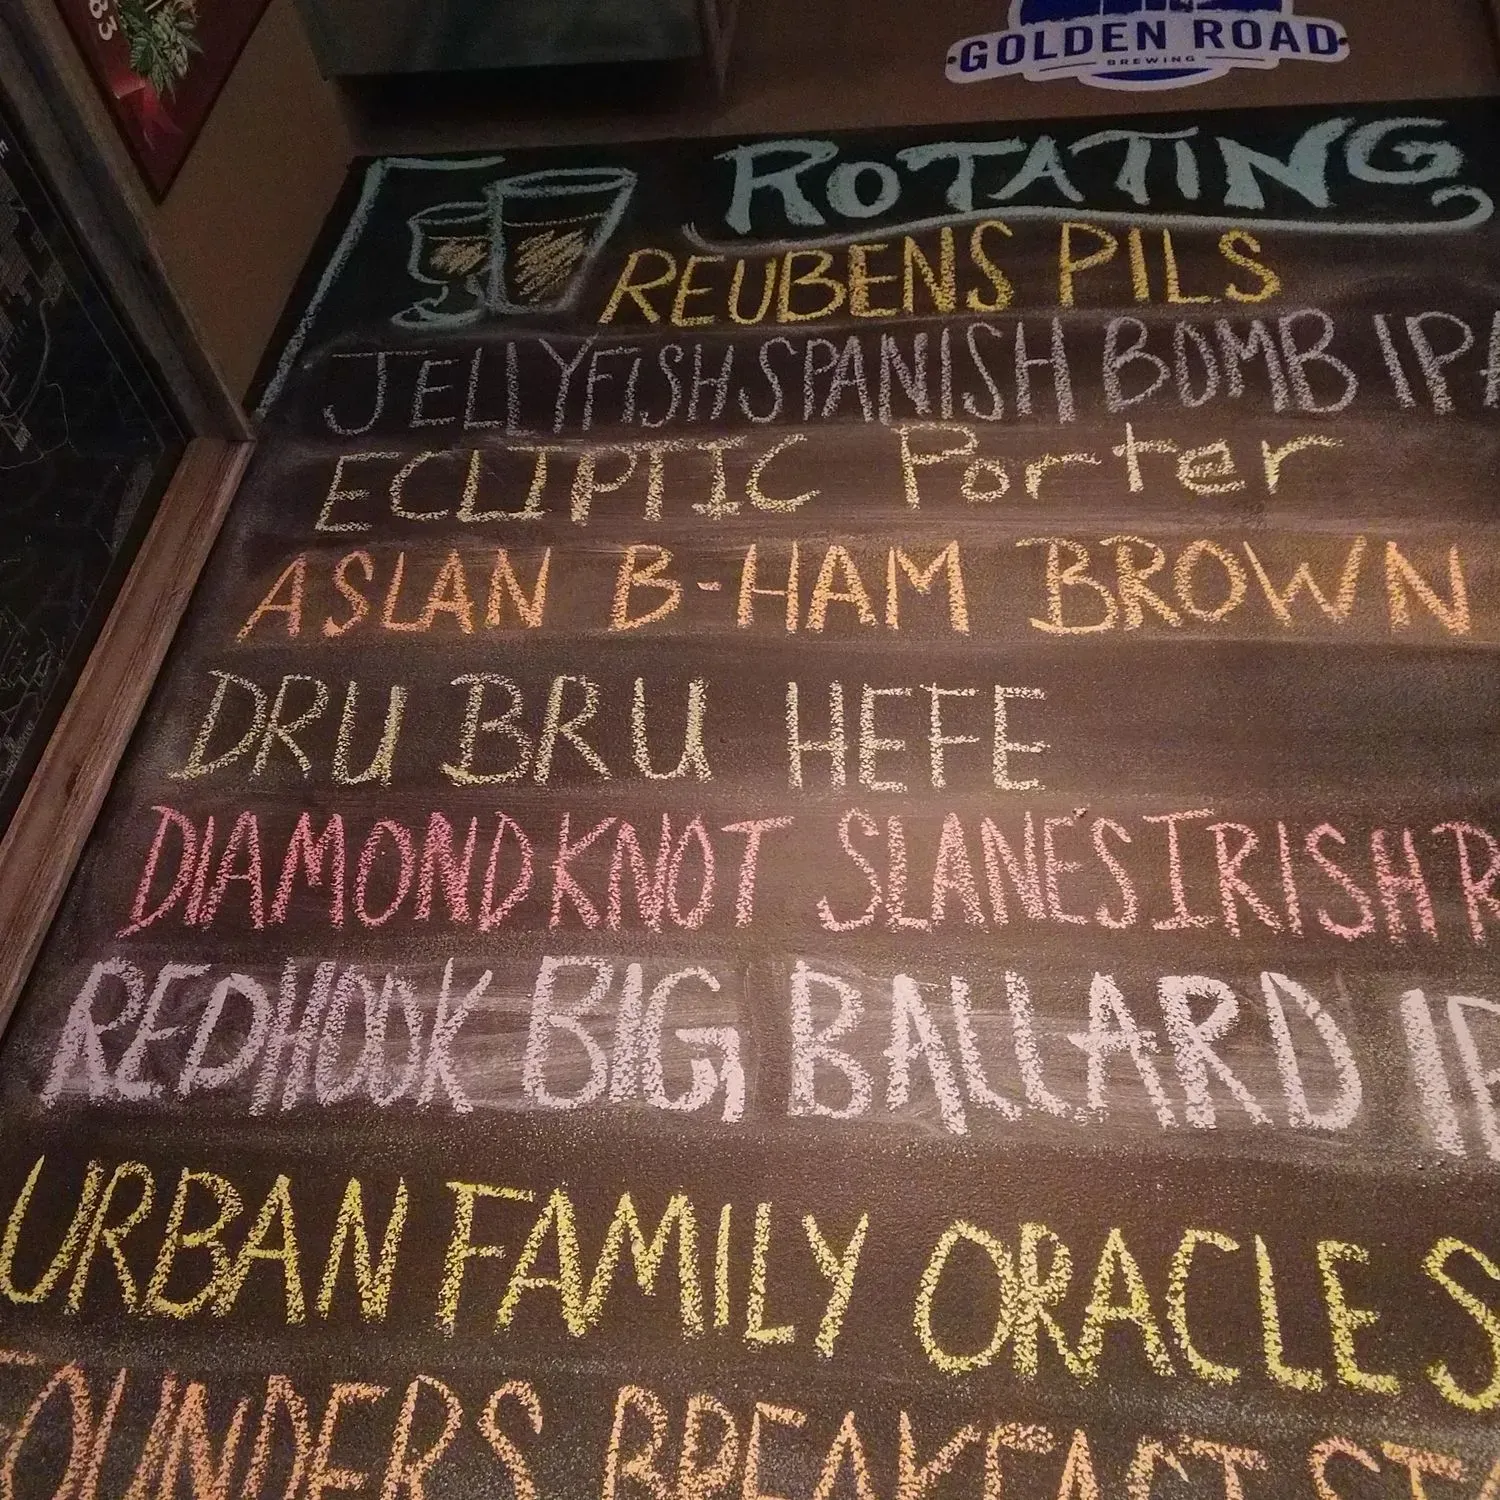 83
GOLDEN ROAD
BREWING
ROTATING
REUBENS PILS
JELLYFISH SPANISH BOMB IPA
ECLIPTIC Porter
ASLAN B-HAM BROWN
DRU BRU HEFE
DIAMOND KNOT SLANE'S IRISH R
REDHOOK BIG BALLARD IP
URBAN FAMILY ORACLE S
OUNDERS BREAKFAST ST